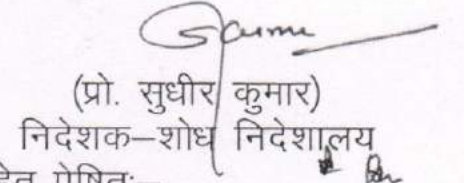 (प्रो. सुधीर कुमार)
निदेशक–शोध निदेशालय
प्रेषितः–